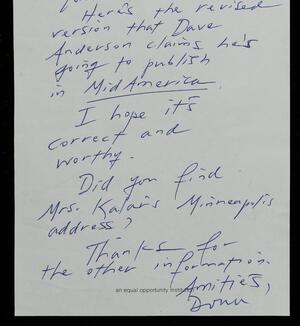 Here's the revised
version that Dave
Anderson claims he's
going to publish
in MidAmerica.
I hope it's
correct and
worthy.
Did you find
Mrs. Kalar's Minneapolis
address?
Thanks for
the other information.
an equal opportunity
Amities,